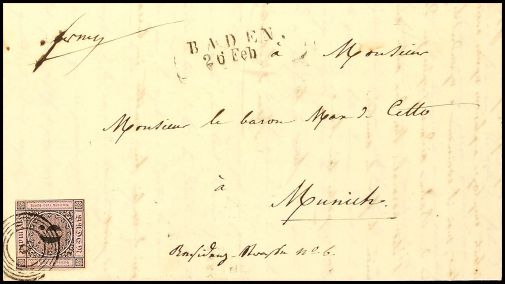 BADEN.
26 Feb
à Monsieur
Monsieur le baron Max de Cetto
à
Munich
No 6.